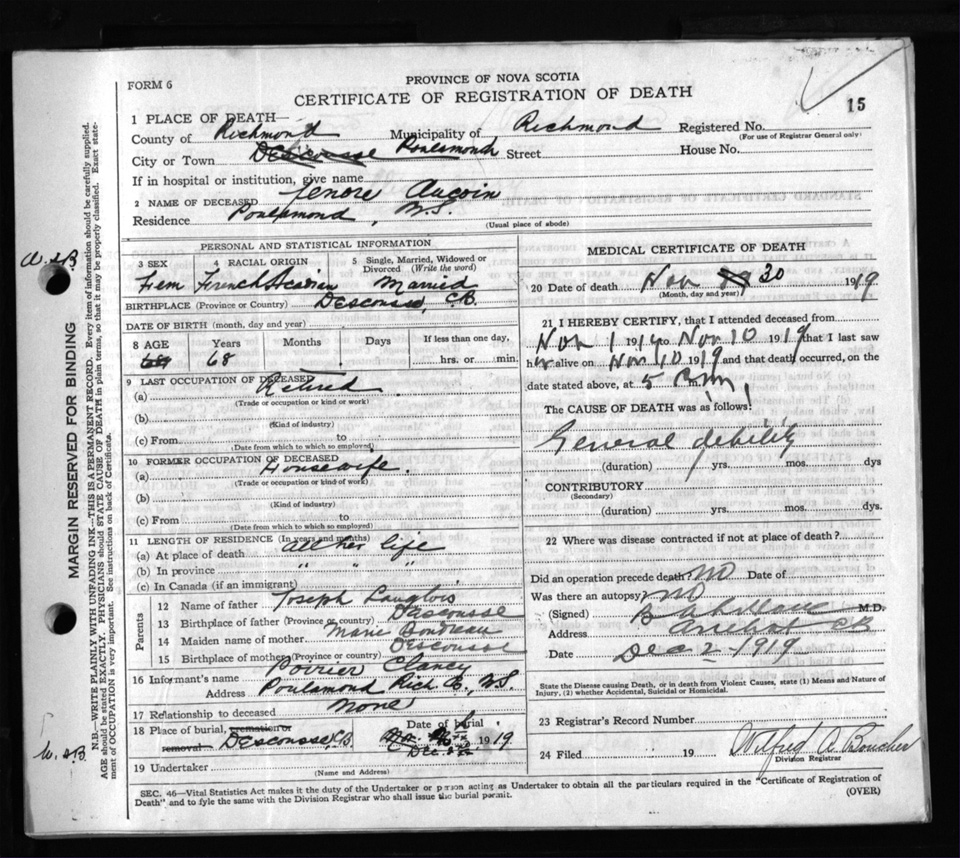 FORM 6
PROVINCE OF NOVA SCOTIA
CERTIFICATE OF REGISTRATION OF DEATH
15
1 PLACE OF DEATH—
County of Richmond Municipality of Richmond Registered No.
(For use of Registrar General only)
City or Town Descousse Poulamond Street House No.
If in hospital or institution, give name
2 NAME OF DECEASED Lenore Aucoin
Residence Poulamond, N.S.
(Usual place of abode)
PERSONAL AND STATISTICAL INFORMATION
3 SEX 4 RACIAL ORIGIN 5 Single, Married, Widowed or Divorced (Write the word)
Fem French Acadian Married
BIRTHPLACE (Province or Country) Descousse, C.B.
DATE OF BIRTH (month, day and year)
8 AGE Years Months Days If less than one day,
68 hrs. or min.
9 LAST OCCUPATION OF DECEASED
(a) Retired
(Trade or occupation or kind or work)
(b)
(Kind of industry)
(c) From to
(Date from which to which so employed)
10 FORMER OCCUPATION OF DECEASED
(a) Housewife.
(Trade or occupation or kind of work)
(b)
(Kind of industry)
(c) From to
(Date from which to which so employed)
11 LENGTH OF RESIDENCE (In years and months)
(a) At place of death all her life
(b) In province " " "
(c) In Canada (if an immigrant)
Parents
12 Name of father Joseph Langlois
13 Birthplace of father (Province or country) Descousse
14 Maiden name of mother Marie Boudreau
15 Birthplace of mother (Province or country) Descousse
16 Informant's name Poirier Clancy
Address Poulamond Rich Co., N.S.
17 Relationship to deceased None
18 Place of burial, cremation or removal Descousse C.B. Date of burial Dec. 1919
19 Undertaker
(Name and Address)
MEDICAL CERTIFICATE OF DEATH
20 Date of death Nov 30 1919
(Month, day and year)
21 I HEREBY CERTIFY, that I attended deceased from
Nov 1 1919 to Nov 10 1919 that I last saw
her alive on Nov 10 1919 and that death occurred, on the
date stated above, at 5 m.
The CAUSE OF DEATH was as follows:
General debility
(duration) yrs. mos. dys
CONTRIBUTORY
(Secondary)
(duration) yrs. mos. dys.
22 Where was disease contracted if not at place of death?
Did an operation precede death No Date of
Was there an autopsy? No
(Signed) M.D.
Address Arichat CB
Date Dec 2 1919
State the Disease causing Death, or in death from Violent Causes, state (1) Means and Nature of
Injury, (2) whether Accidental, Suicidal or Homicidal.
23 Registrar's Record Number
24 Filed 19 Wilfred A. Boucher
Division Registrar
SEC. 46—Vital Statistics Act makes it the duty of the Undertaker or person acting as Undertaker to obtain all the particulars required in the "Certificate of Registration of
Death" and to file the same with the Division Registrar who shall issue the burial permit. (OVER)
MARGIN RESERVED FOR BINDING
N.B.—WRITE PLAINLY WITH UNFADING INK—THIS IS A PERMANENT RECORD. Every item of information should be carefully supplied.
AGE should be stated EXACTLY. PHYSICIANS should STATE CAUSE OF DEATH in plain terms, so that it may be properly classified. Exact state-
ment of OCCUPATION is very important. See instructions on back of Certificate.